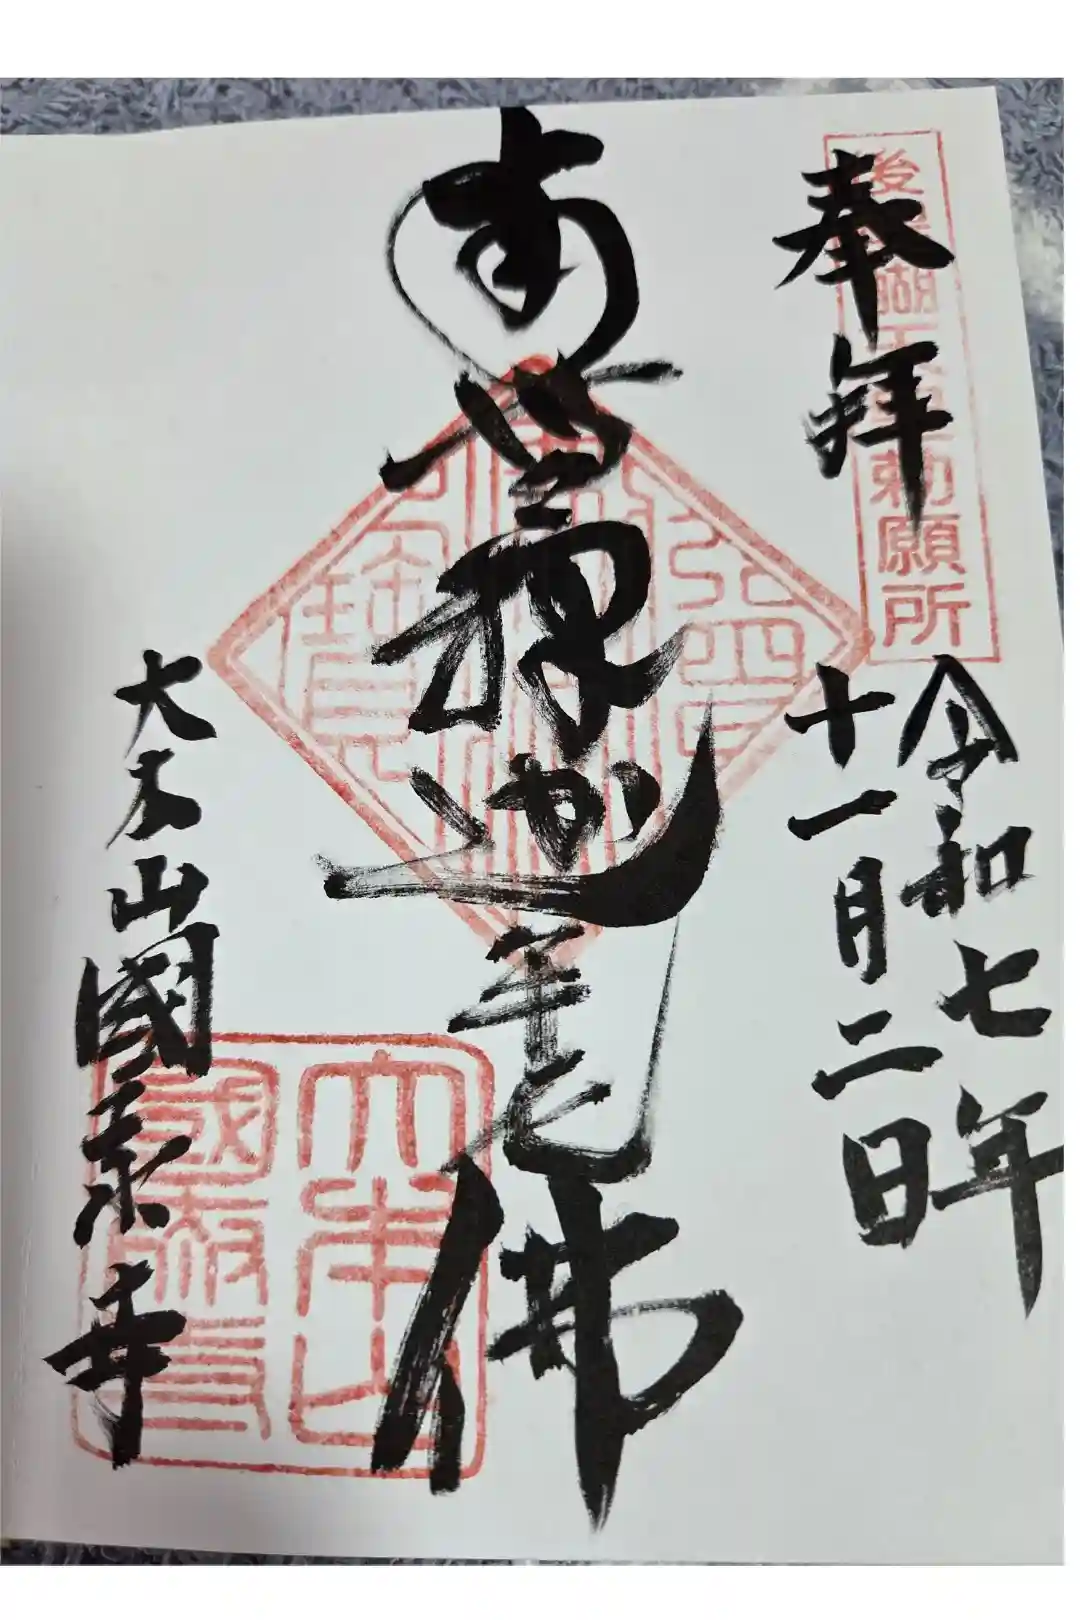 後醍醐天皇勅願所
奉拝
令和七年
十一月二日
南無釋迦牟尼佛
大本山國泰寺
大本山
國泰寺